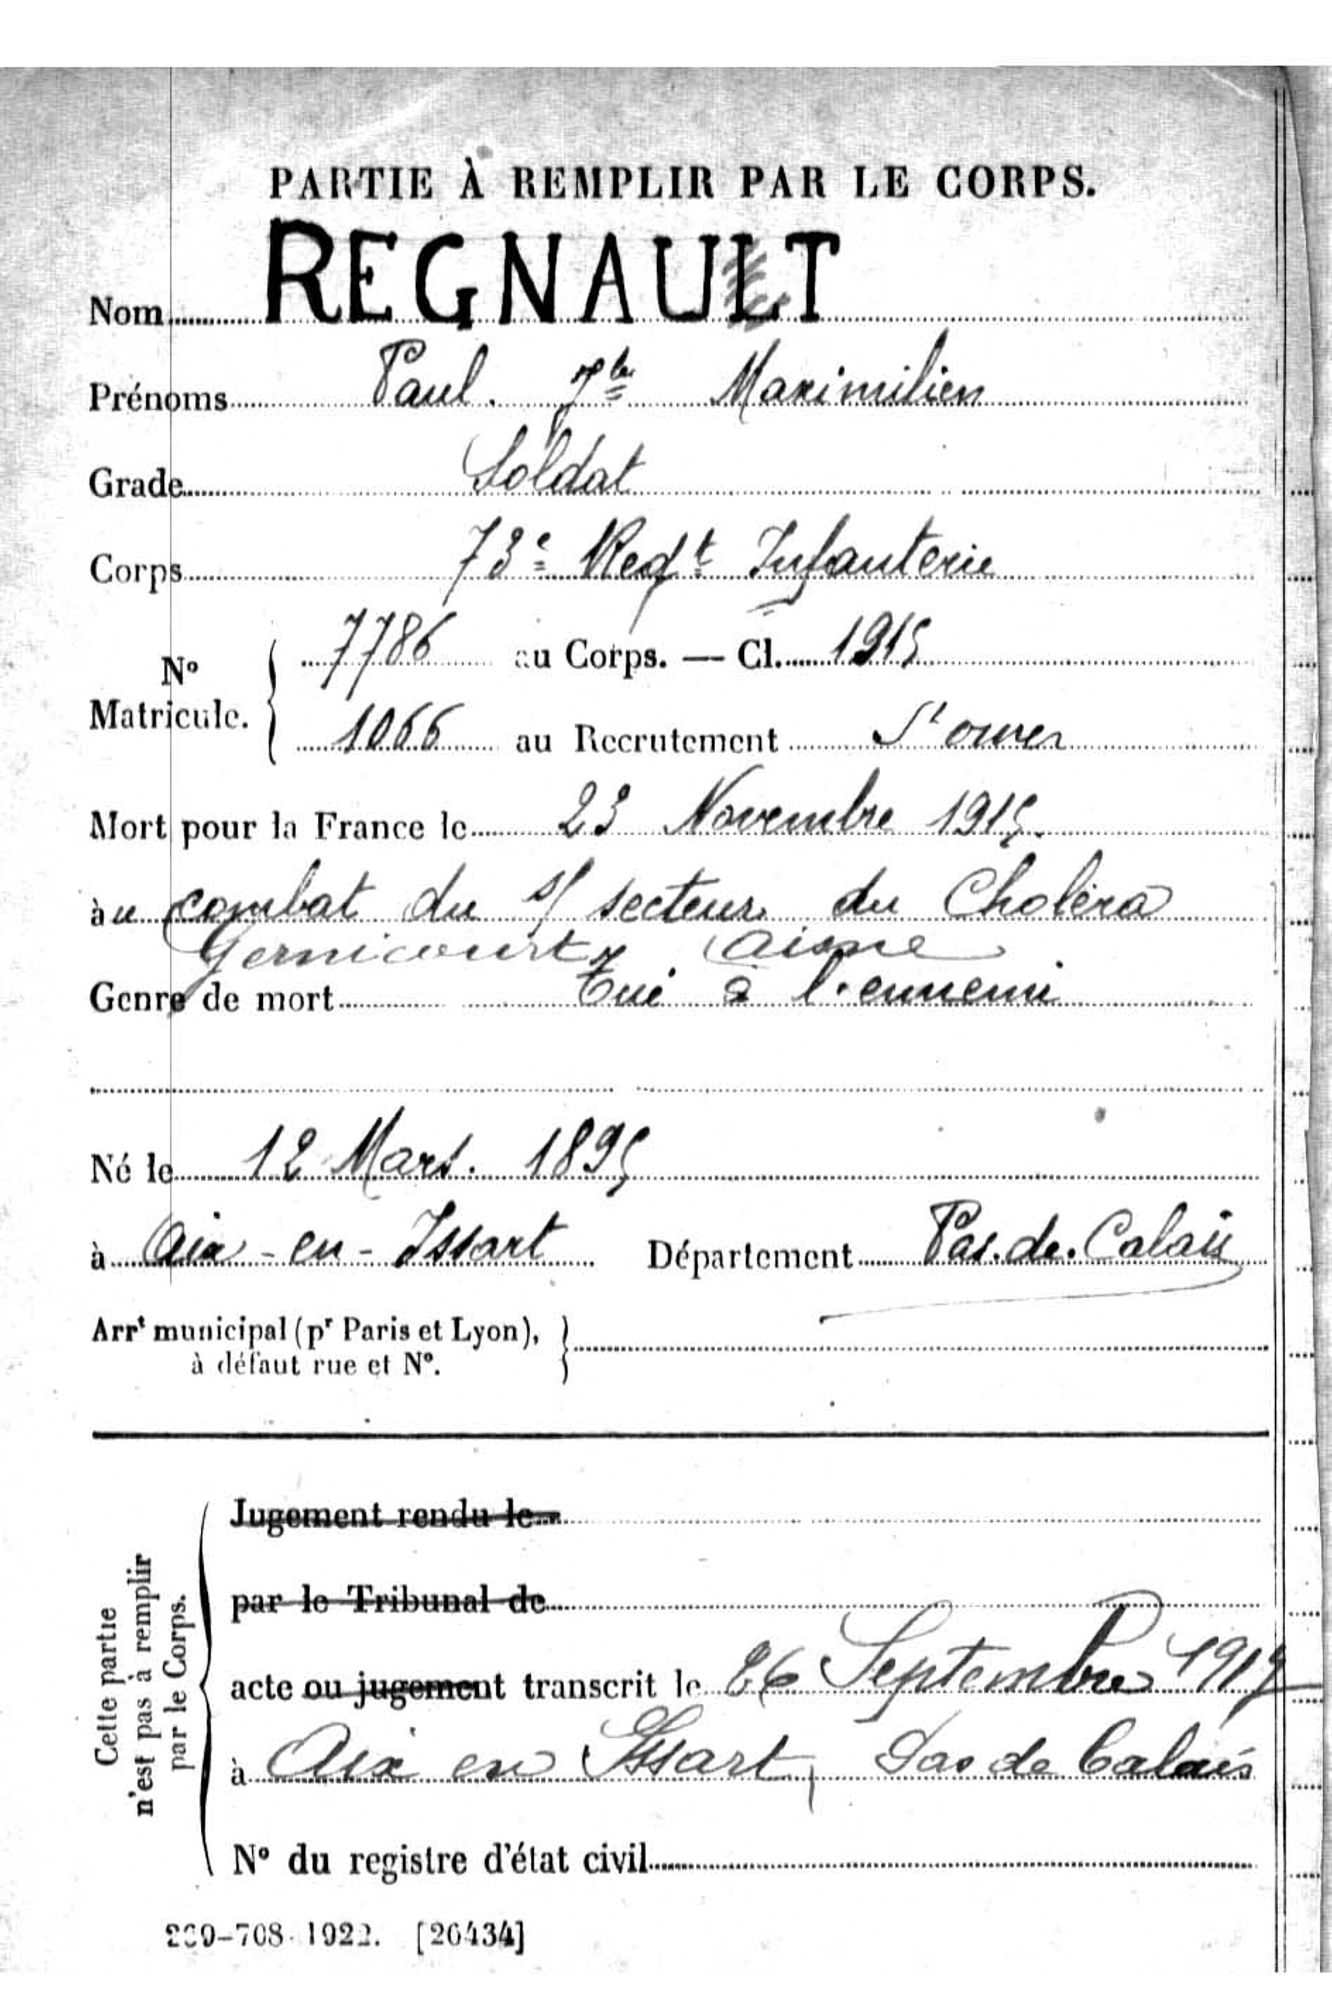 PARTIE À REMPLIR PAR LE CORPS.
Nom REGNAULT
Prénoms Paul. Jh Maximilien
Grade Soldat
Corps 73e Regt Infanterie
No Matricule. 7786 au Corps. — Cl. 1915
1066 au Recrutement St omer
Mort pour la France le 23 Novembre 1915.
àu combat du s/ secteur du Choléra
Gernicourt, Aisne
Genre de mort Tué à l'ennemi
Né le 12 Mars. 1895
à Aix-en-Issart Département Pas.de.Calais
Arrt municipal (pr Paris et Lyon),
à défaut rue et No.
Cette partie
n'est pas à remplir
par le Corps.
Jugement rendu le
par le Tribunal de
acte ou jugement transcrit le 26 Septembre 1917
à Aix en Issart, Pas de Calais
No du registre d'état civil
-708-1922. [26434]